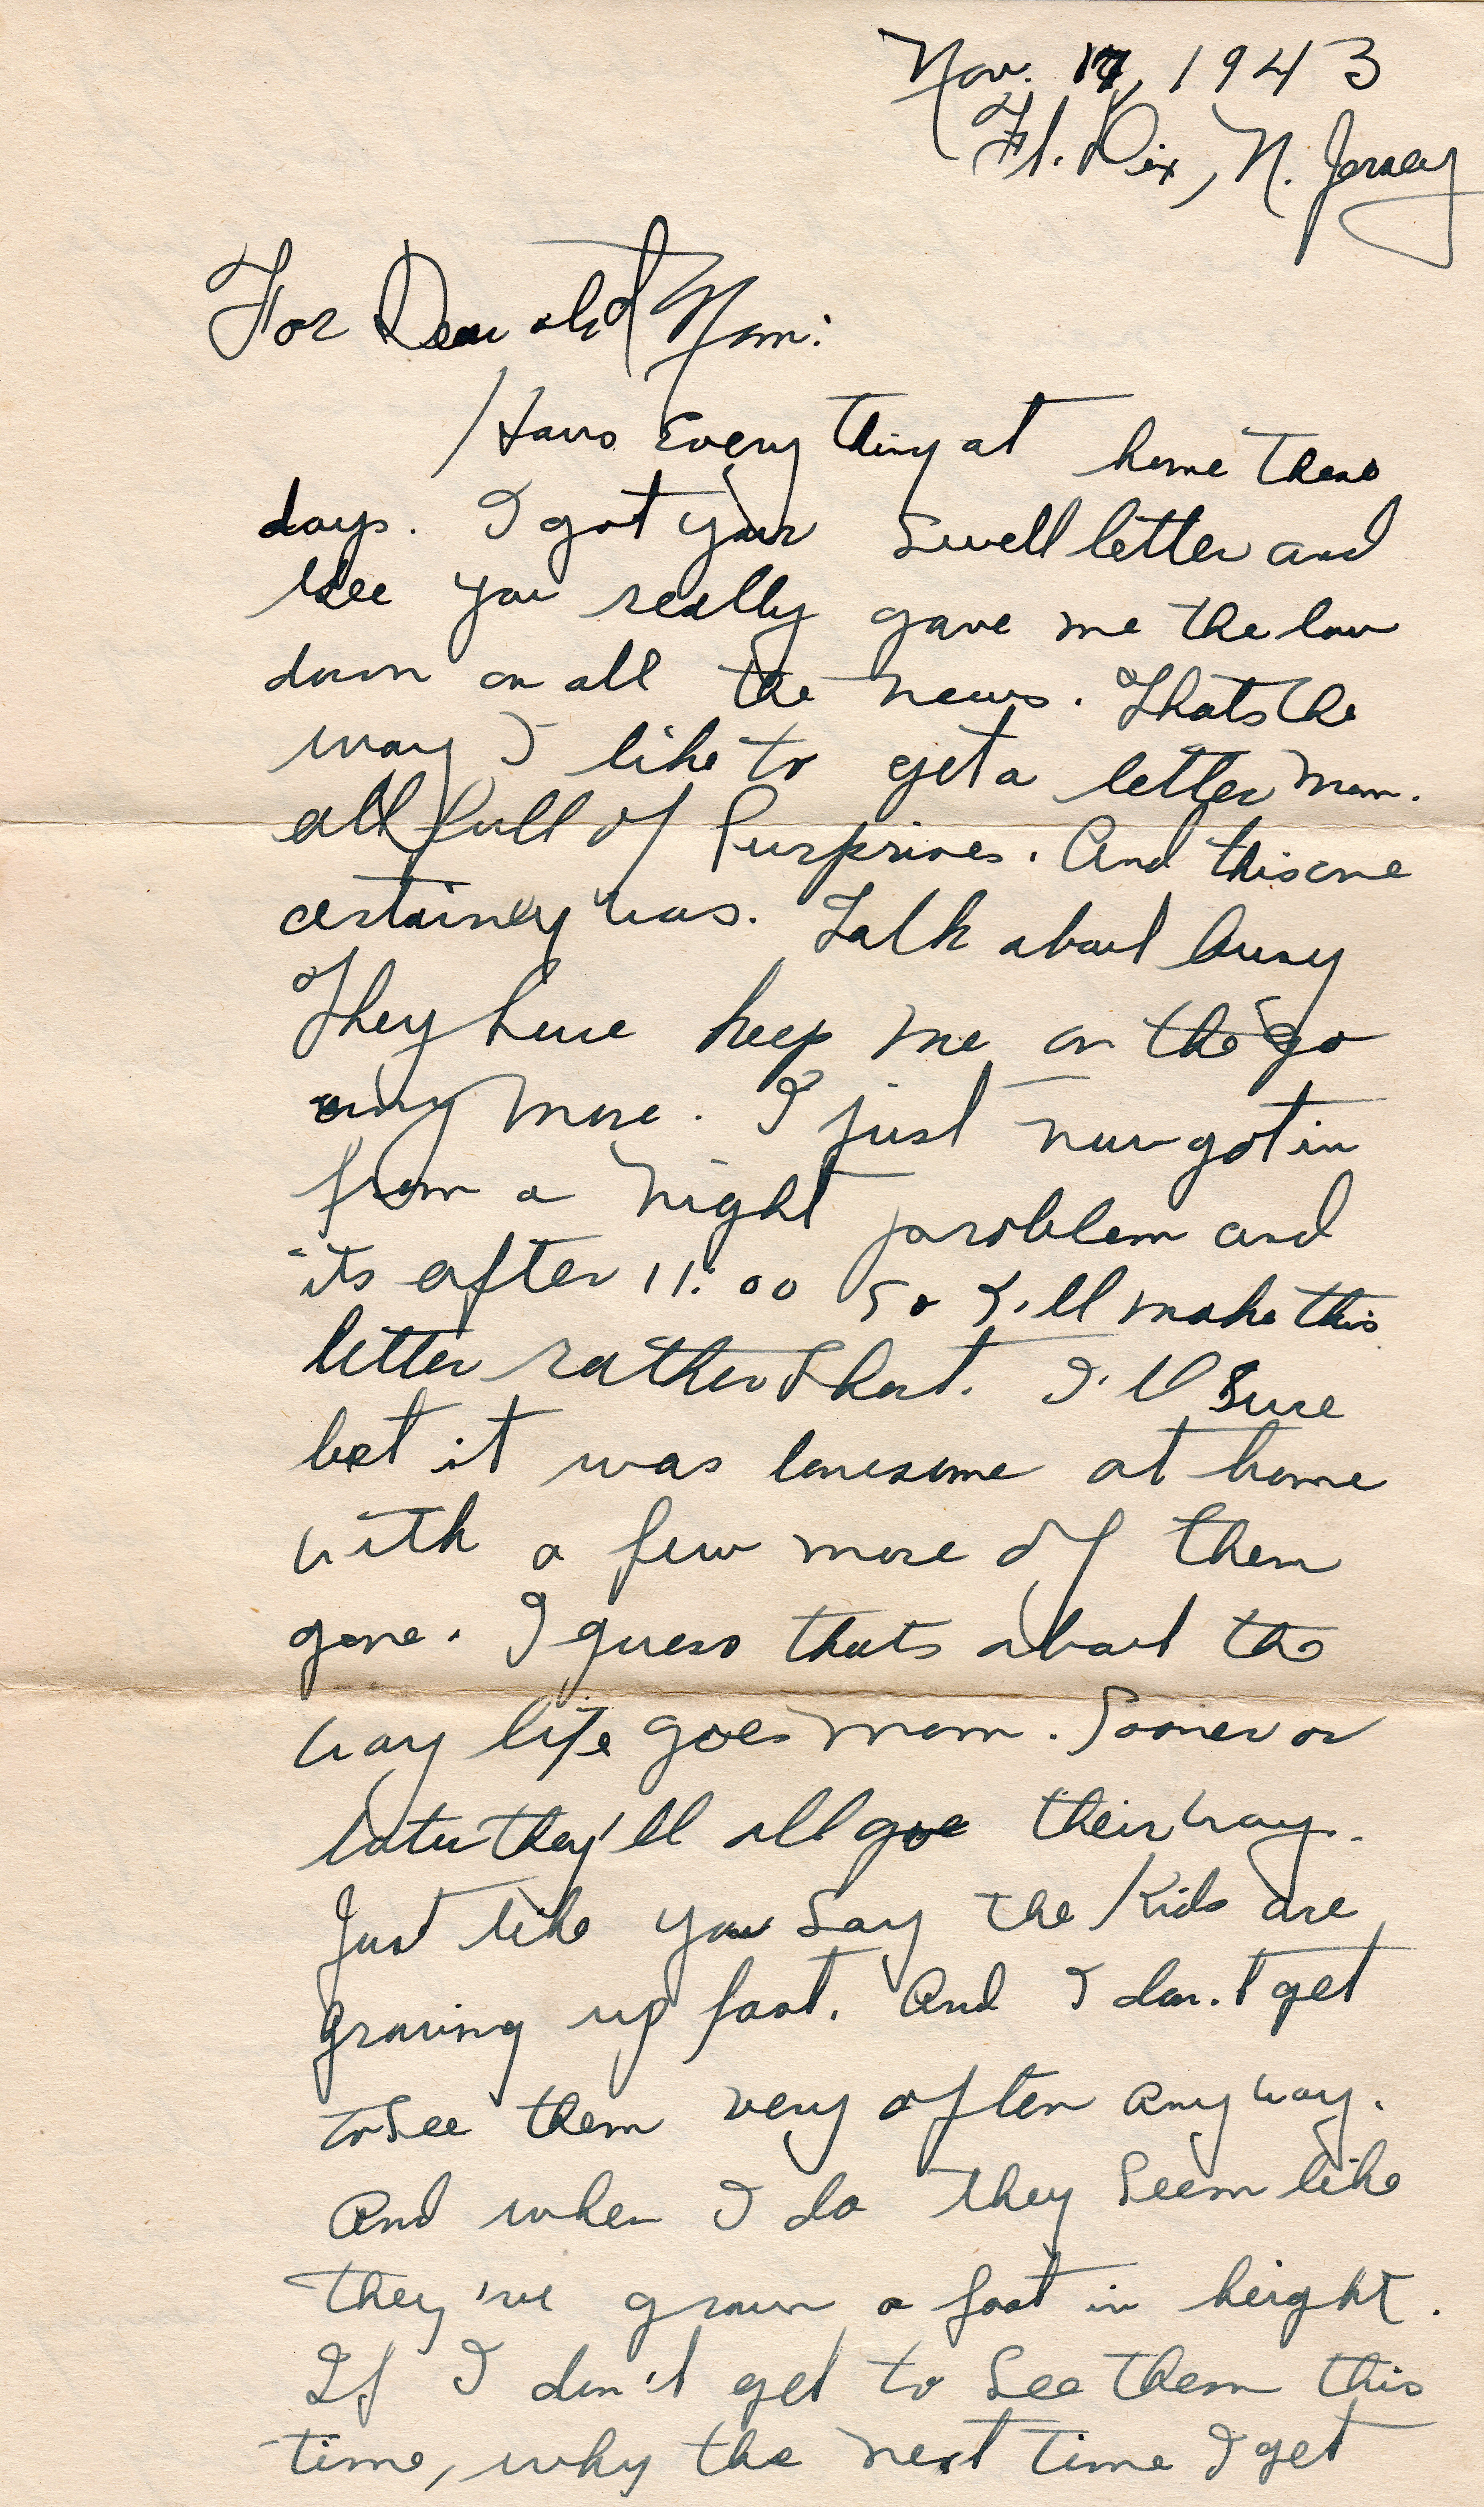 Nov. 17, 1943
Ft. Dix, N. Jersey
For Dear old Mom:
Hows Every thing at home these
days. I got your swell letter and
see you really gave me the low
down on all the news. Thats the
way I like to get a letter Mom.
all full of Surprises. And this one
certainly was. Talk about busy
They sure keep me on the go
any more. I just now got in
from a night problem and
its after 11:00 so I'll make this
letter rather short. I'll sure
bet it was lonesome at home
with a few more of them
gone. I guess thats about the
way life goes mom. Sooner or
later they'll all goe their way.
Just like you say the Kids are
growing up fast. And I don't get
to see them very often any way.
And when I do they seem like
they've grown a foot in height.
If I don't get to see them this
time, why the next time I get